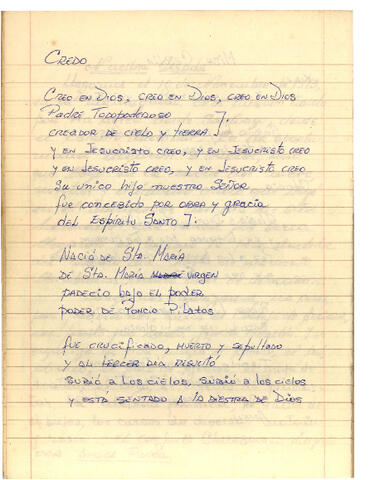 CREDO
CREO EN DIOS, CREO EN DIOS, CREO EN DIOS
Padre Todopoderoso ].
CREADOR DE CIELO y TIERRA
y EN JESUCRISTO CREO, y EN JESUCRISTO CREO
y EN JESUCRISTO CREO, y EN JESUCRISTO CREO
Su UNICO hijo NUESTRO SEÑOR
fue concebido por obra y gracia
del Espíritu Santo ].
Nació de Sta. María
DE Sta. María VIRGEN
padecio bajo EL poder
poder DE PONCIO Pilatos
fue crucificado, MUERTO y sepultado
y al TERCER DIA
SUBIÓ A LOS CIELOS, SUBIÓ A LOS CIELOS
y ESTÁ SENTADO A la DIESTRA DE DIOS